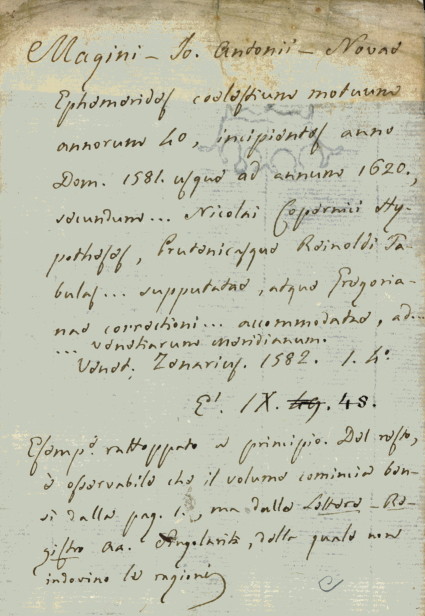 Magini – Jo. Antonii – Novae
Ephemerides coelestium motuum
annorum 40, incipientes anno
Dom. 1581. usque ad annum 1620.,
secundum ... Nicolai Copernici Hy-
potheses, Prutenicasque Reinoldi Ta-
bulas ... supputatae, atque Gregoria-
nae correctioni ... accommodatae, ad ...
... Venetiarum meridianum.
Venet. Zenarius. 1582. 1. 4°.
E'. IX. 49. 48.
rattoppato a principio. Del resto,
è osservabile che il volume comincia ben-
sì dalla pag. 1., ma dalla Lettera – Re-
gistro aa. , della quale non
indovino le ragioni